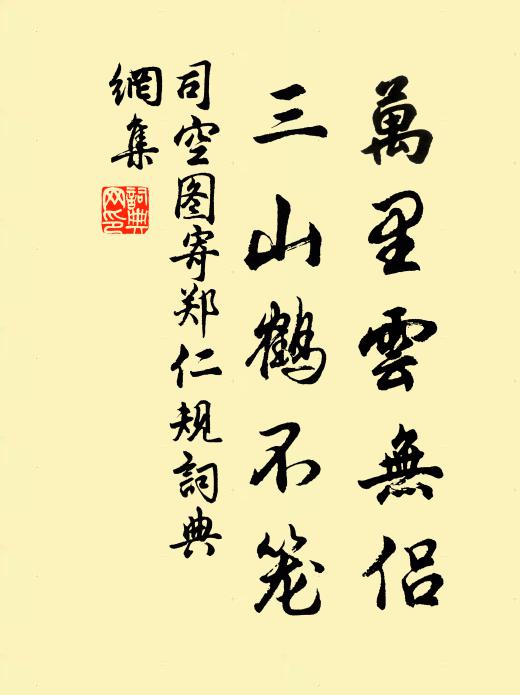 萬里雲無侣
三山鶴不笼
司空图寄郑仁规詞典
網集
詞典網印